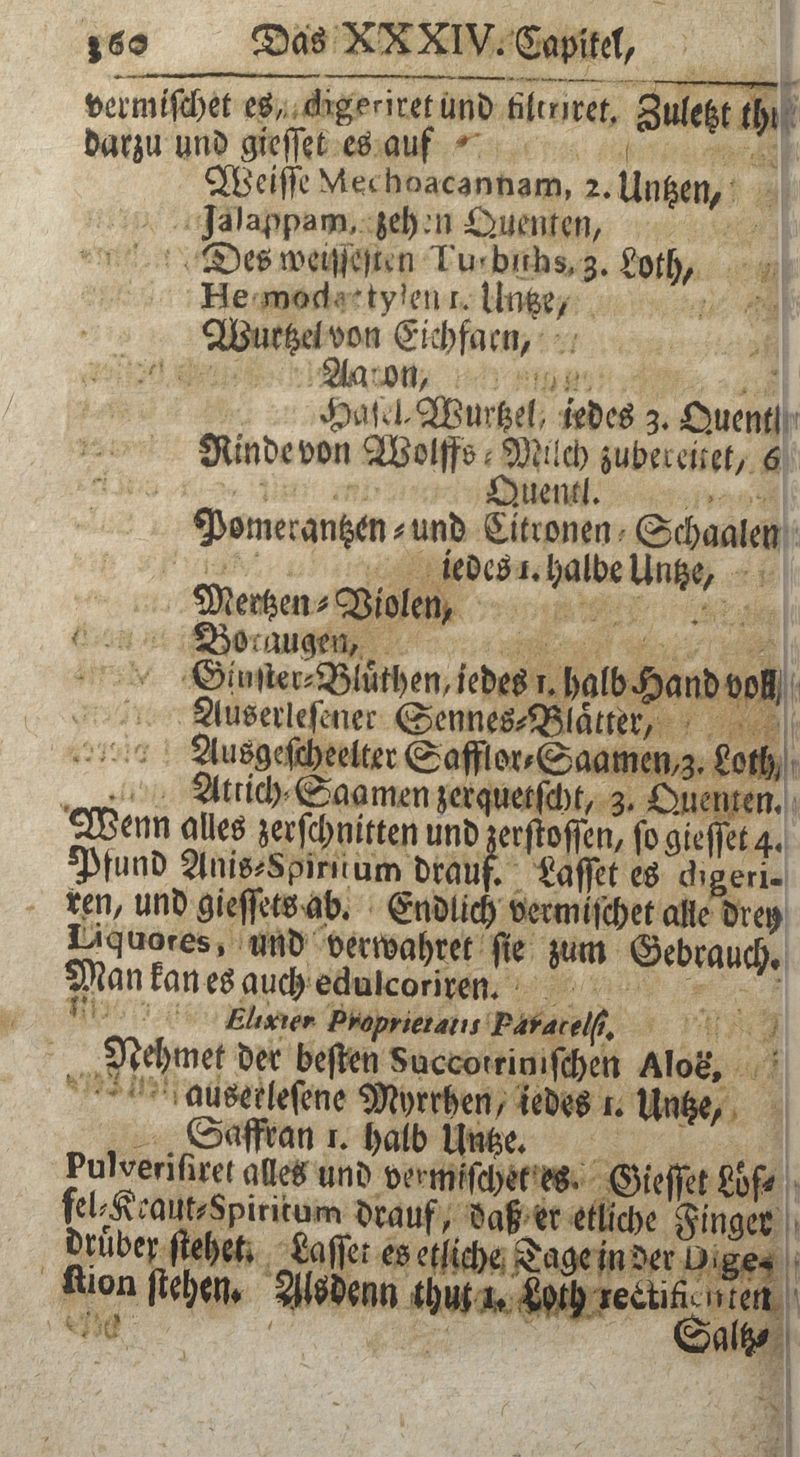 360 Das XXXIV. Capitel,
vermischet es, digeriret und filtriret. Zuletzt thu
darzu und giesset es auf
Weisse Mechoacannam, 2. Untzen,
Jalappam, zehen Quenten,
Des weissesten Turbiths, 3. Loth,
Hermodactylen 1. Untze,
Wurtzel von Eichfarn,
Aaron,
Hasel-Wurtzel, iedes 3. Quentl
Rinde von Wolffs-Milch zubereitet, 6
Quentl.
Pomerantzen- und Citronen-Schaalen
iedes 1. halbe Untze,
Mertzen-Violen,
Boraugen,
Ginster-Blüthen, iedes 1. halb Hand voll,
Auserlesener Sennes-Blätter,
Ausgescheelter Safflor-Saamen, 3. Loth,
Attich-Saamen zerquetscht, 3. Quenten.
Wenn alles zerschnitten und zerstossen, so giesset 4.
Pfund Anis-Spiritum drauf. Lasset es digeri-
ren, und giessets ab. Endlich vermischet alle drey
Liquores, und verwahret sie zum Gebrauch.
Man kan es auch edulcoriren.
Elixier Proprietatis Paracelsi.
Nehmet der besten Succotrinischen Aloë,
auserlesene Myrrhen, iedes 1. Untze,
Saffran 1. halb Untze.
Pulverisiret alles und vermischet es. Giesset Löf-
fel-Kraut-Spiritum drauf, daß er etliche Finger
drüber stehet. Lasset es etliche Tage in der Dige-
stion stehen. Alsdenn thut 1. Loth rectificirten
Saltz-